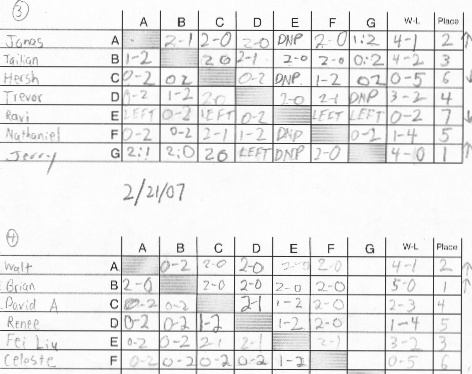 3
A B C D E F G W-L Place
Jonas A 2-1 2-0 2-0 DNP 2-0 1:2 4-1 2
B 1-2 20 2-1 2-0 2-0 0:2 4-2 3
Hersh C 0-2 02 0-2 DNP 1-2 02 0-5 6
Trevor D 0-2 1-2 20 2-0 2-1 DNP 3-2 4
Ravi E LEFT 0-2 LEFT 0-2 LEFT LEFT 0-2 7
Nathaniel F 0-2 0-2 2-1 1-2 DNP 0-2 1-4 5
Jerry G 2:1 2:0 20 LEFT DNP 2-0 4-0 1
2/21/07
4
A B C D E F G W-L Place
Walt A 0-2 2-0 2-0 2-0 2-0 4-1 2
Brian B 2-0 2-0 2-0 2-0 2-0 5-0 1
David A C 0-2 0-2 2-1 1-2 2-0 2-3 4
Renee D 0-2 0-2 1-2 1-2 2-0 1-4 5
Fei Liu E 0-2 0-2 2-1 2-1 2-1 3-2 3
Celeste F 0-2 0-2 0-2 0-2 1-2 0-5 6